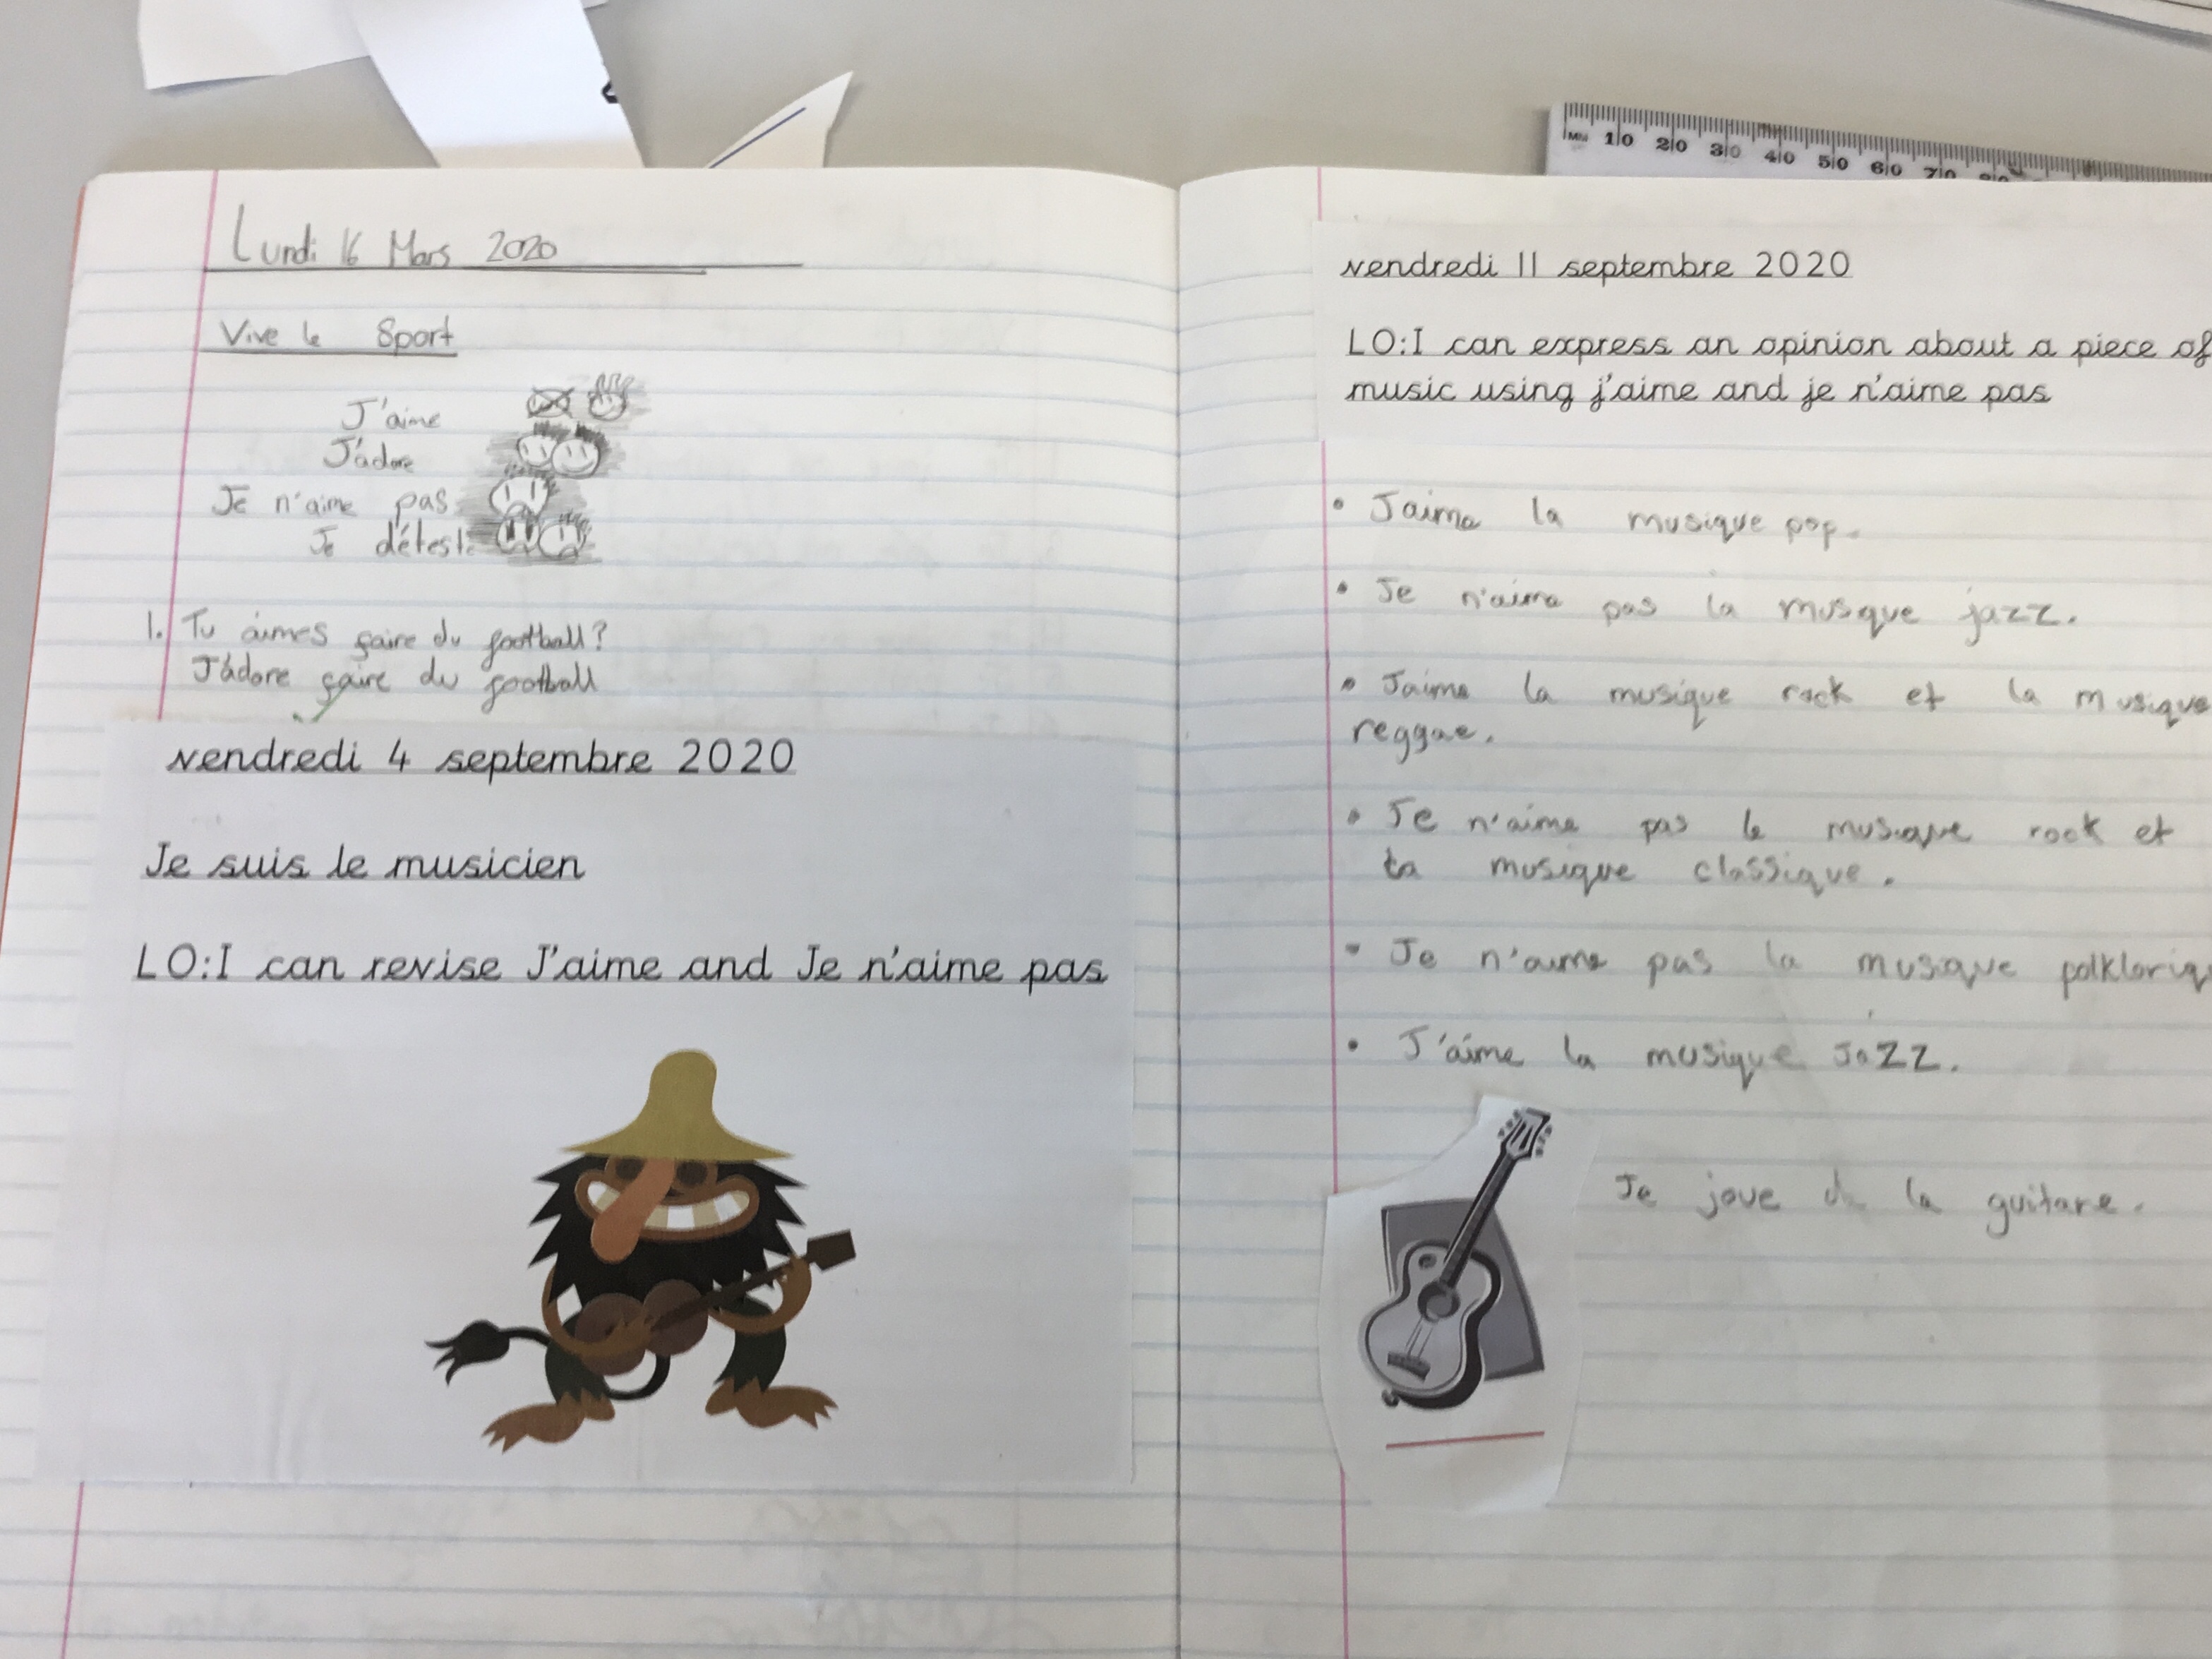 Lundi 16 Mars 2020
Vive le Sport
J'aime
J'adore
Je n'aime pas
Je déteste
1. Tu aimes faire du football?
J'adore faire du football
vendredi 4 septembre 2020
Je suis le musicien
LO:I can revise J'aime and Je n'aime pas
vendredi 11 septembre 2020
LO:I can express an opinion about a piece of
music using j'aime and je n'aime pas
• J'aime la musique pop.
• Je n'aime pas la musque jazz.
• J'aime la musique rock et la musique
reggae.
• Je n'aime pas le musique rock et
la musique classique.
• Je n'aime pas la musique polkloriq
• J'aime la musique Jazz.
Je joue de la guitare.
MM 10 20 30 40 50 60 70